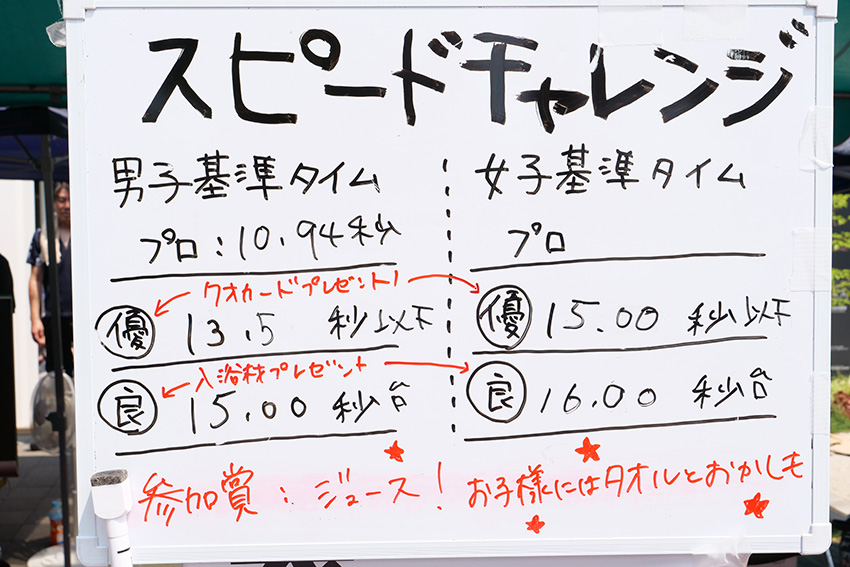 スピードチャレンジ
男子基準タイム
プロ：10.94秒
クオカードプレゼント！
優 13.5 秒以下
入浴材プレゼント
良 15.00 秒台
女子基準タイム
プロ
優 15.00 秒以下
良 16.00 秒台
参加賞：ジュース！お子様にはタオルとおかしも